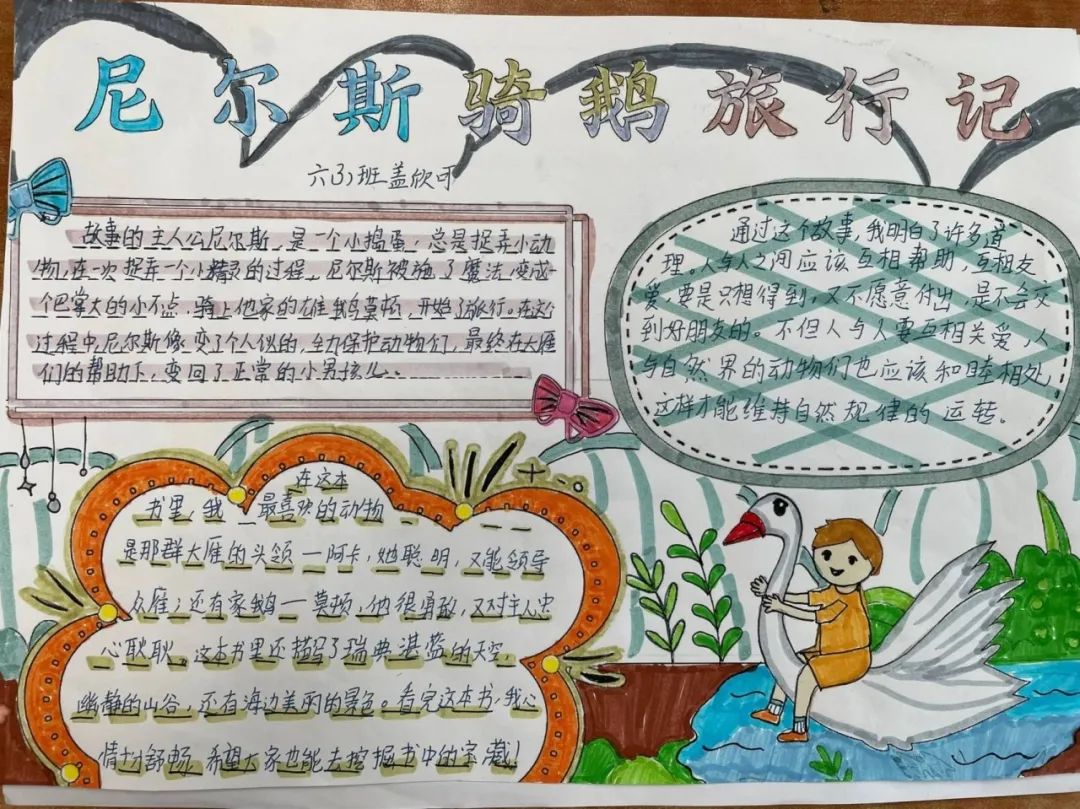 尼尔斯骑鹅旅行记
六(3)班盖欣可
故事的主人公尼尔斯,是一个小捣蛋,总是捉弄小动
物,在一次捉弄一个小精灵的过程,尼尔斯被施了魔法,变成一
个巴掌大的小不点,骑上他家的雄鹅莫顿,开始了旅行。在这个
过程中,尼尔斯像变了个人似的,全力保护动物们,最终在大雁
们的帮助下,变回了正常的小男孩儿。
通过这个故事,我明白了许多道
理。人与人之间应该互相帮助,互相友
爱,要是只想得到,又不愿意付出,是不会交
到好朋友的。不但人与人要互相关爱,人
与自然界的动物们也应该和睦相处,
这样才能维持自然规律的运转。
在这本
书里,我最喜欢的动物
是那群大雁的头领—阿卡,她聪明,又能领导
众雁;还有家鹅—莫顿,他很勇敢,又对主人忠
心耿耿。这本书里还描写了瑞典湛蓝的天空,
幽静的山谷,还有海边美丽的景色。看完这本书,我心
情十分舒畅,希望大家也能去挖掘书中的宝藏!